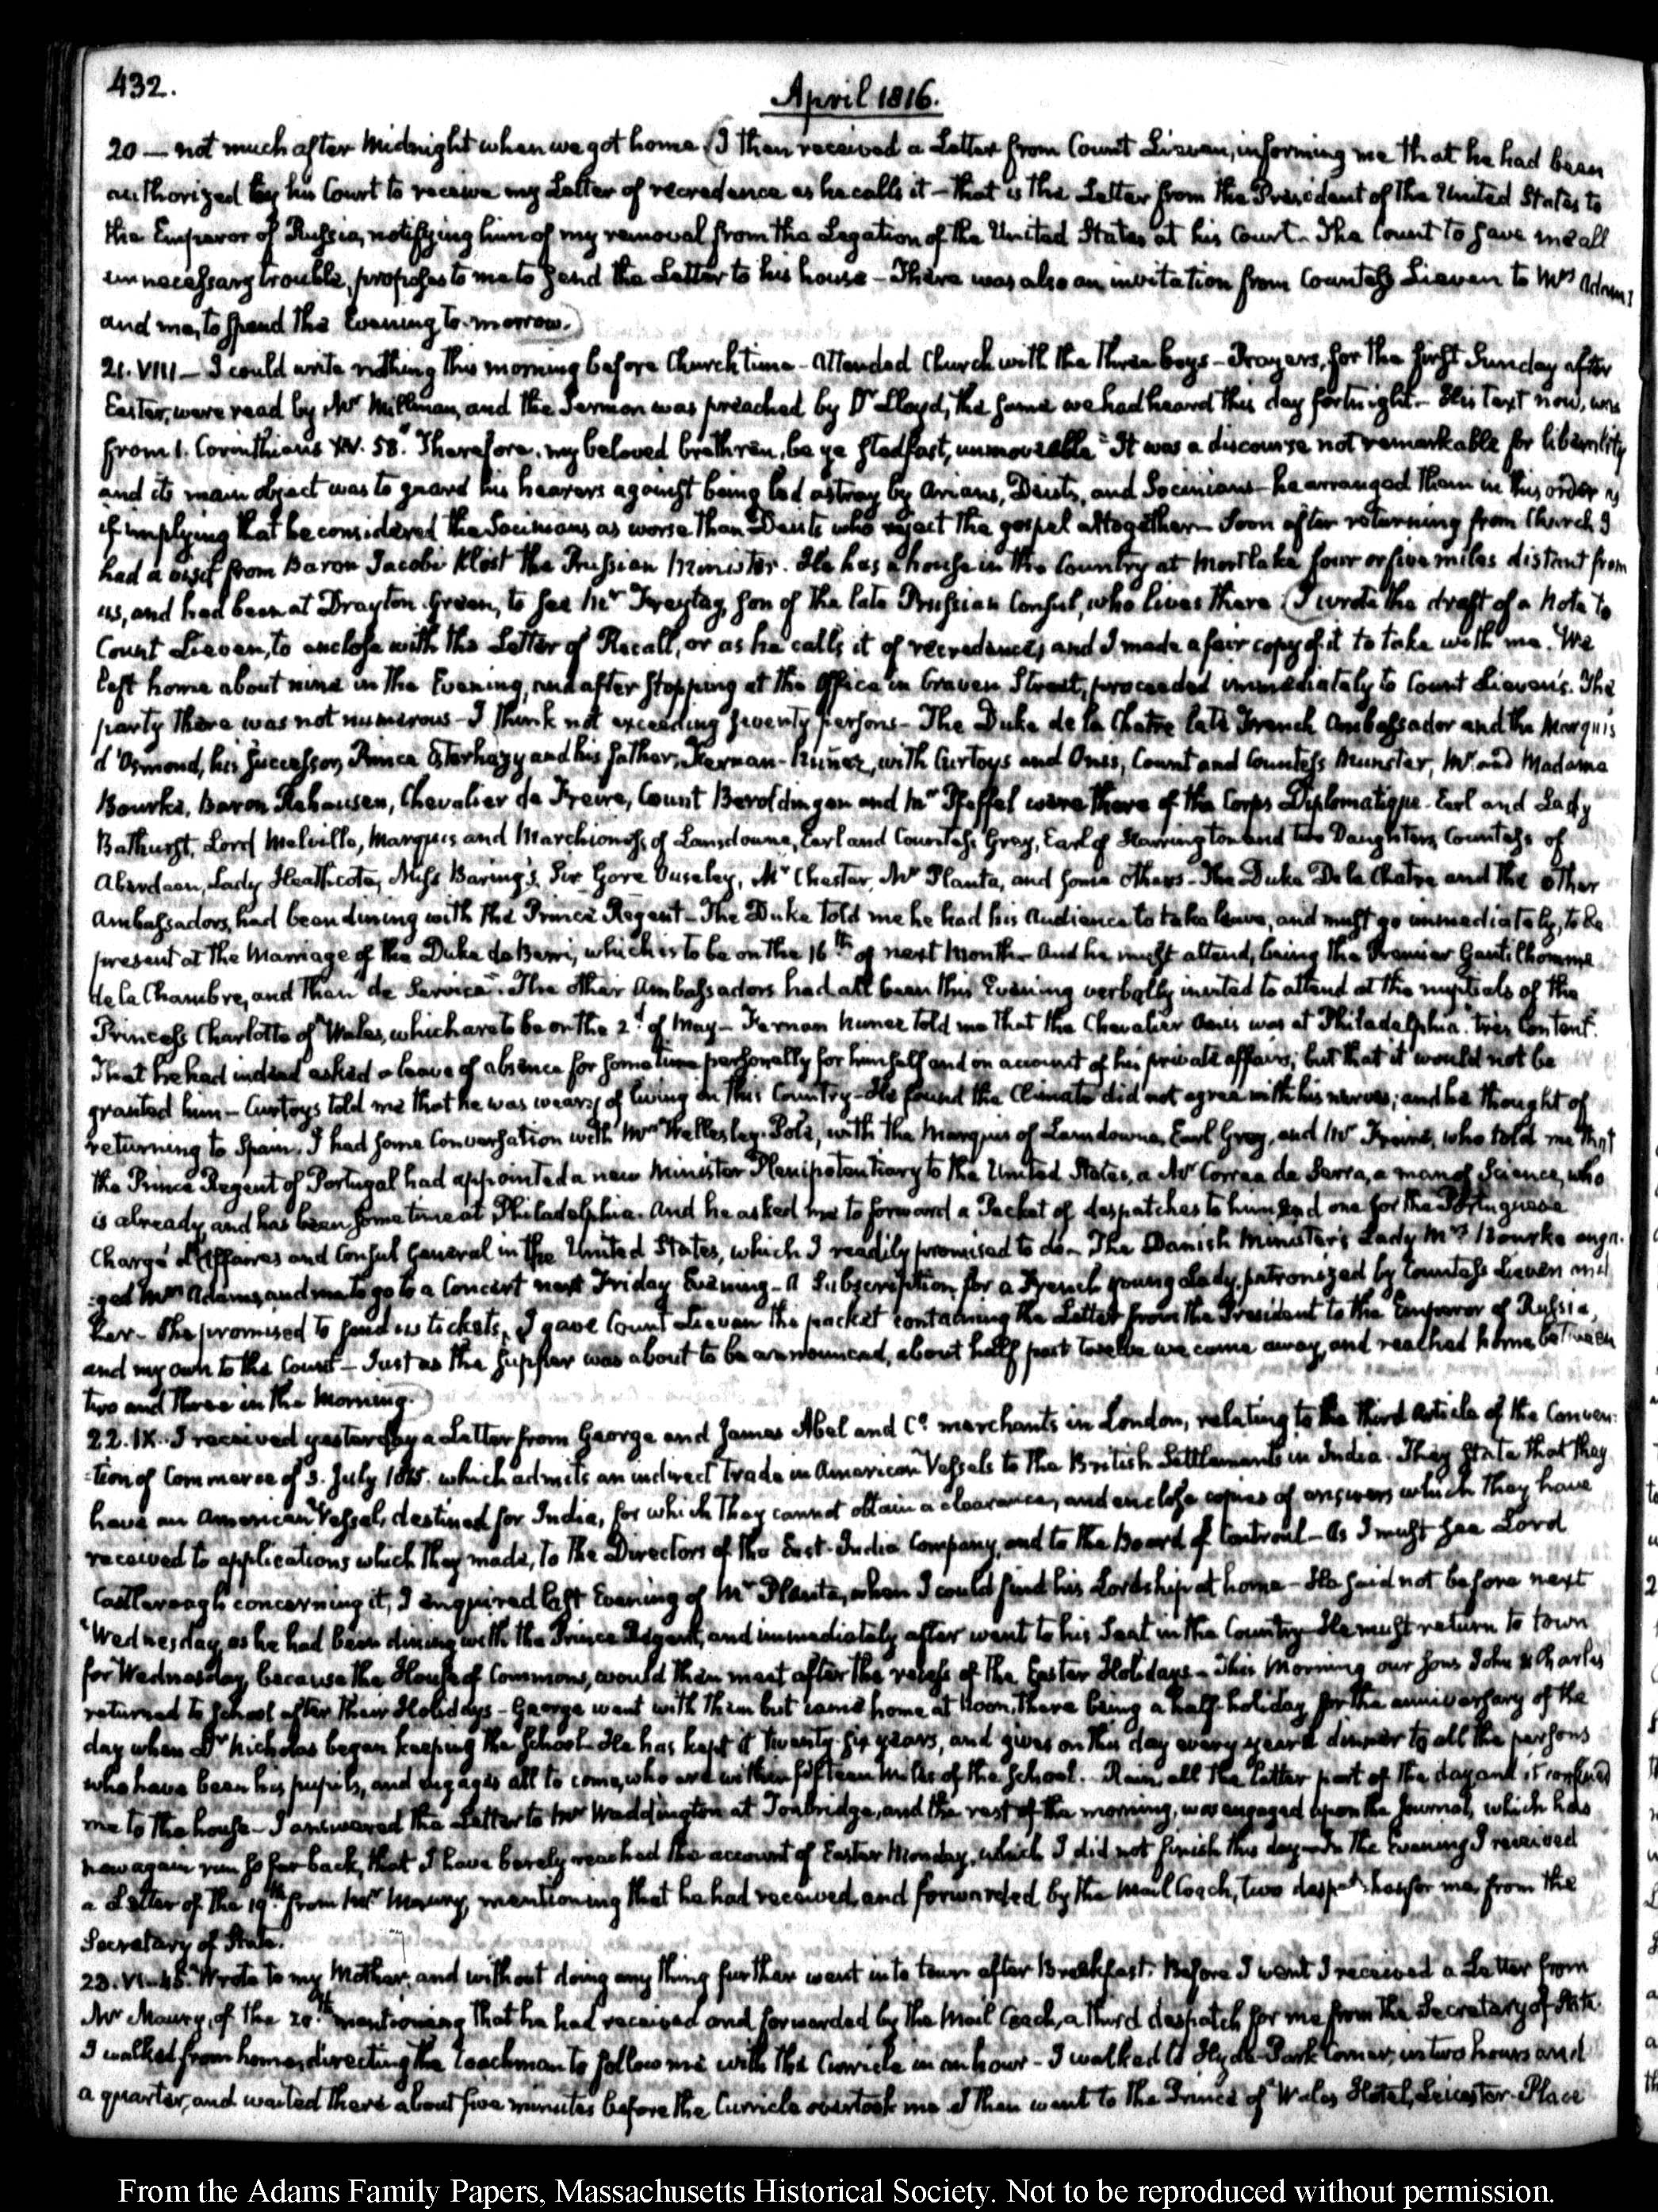 432.
April 1816.
20 — not much after Midnight when we got home. (I then received a Letter from Count Lieven, informing me that he had been
authorized by his Court to receive my Letter of recredence as he calls it — that is the Letter from the President of the United States to
the Emperor of Russia, notifying him of my removal from the Legation of the United States at his Court. The Count to save me all
unnecessary trouble, proposes to me to send the Letter to his house — There was also an invitation from Countess Lieven to Mrs Adams
and me, to spend the Evening to-morrow.)
21. VIII — I could write nothing this morning before Church time — Attended Church with the three boys — Prayers, for the first Sunday after
Easter, were read by Mr Millman, and the Sermon was preached by Dr Lloyd, the same we had heard this day fortnight. His text now, was
from 1. Corinthians XV. 58. "Therefore, my beloved brethren, be ye stedfast, unmoveable" It was a discourse not remarkable for liberality
and its main object was to guard his hearers against being led astray by Arians, Deists, and Socinians — he arranged them in this order as
if implying that he considered the Socinians as worse than Deists who reject the gospel altogether — Soon after returning from Church I
had a visit from Baron Jacobi Klöst the Prussian Minister. He has a house in the Country at Mortlake four or five miles distant from
us, and had been at Drayton Green, to see Mr Freytag, son of the late Prussian Consul, who lives there (I wrote the draft of a Note to
Count Lieven, to enclose with the Letter of Recall, or as he calls it of recredence, and I made a fair copy of it to take with me. We
left home about nine in the Evening, and after stopping at the Office in Craven Street, proceeded immediately to Count Lieven's. The
party there was not numerous — I think not exceeding seventy persons — The Duke de la Chatre late French Ambassador and the Marquis
d'Osmond, his successor, Prince Esterhazy and his father, Fernan-Nuñez, with Curtoys and Onis, Count and Countess Munster, Mr and Madame
Bourke, Baron Rehausen, Chevalier de Freire, Count Beroldingen and Mr Pfeffel were there of the Corps Diplomatique. Earl and Lady
Bathurst, Lord Melville, Marquis and Marchioness of Lansdowne, Earl and Countess Grey, Earl of Harrington and two Daughters, Countess of
Aberdeen, Lady Heathcote, Miss Baring's, Sir Gore Ouseley, Mr Chester, Mr Planta, and some others — The Duke De la Chatre and the other
Ambassadors, had been dining with the Prince Regent — The Duke told me he had his Audience to take leave, and must go immediately, to be
present at the Marriage of the Duke de Berri, which is to be on the 16th of next Month — And he must attend, being the Premier Gentilhomme
de la Chambre, and then "de Service". The other Ambassadors had all been this Evening verbally invited to attend at the nuptials of the
Princess Charlotte of Wales, which are to be on the 2d of May — Fernan Nunez told me that the Chevalier Onis was at Philadelphia "très content".
That he had indeed asked a leave of absence for some time personally for himself and on account of his private affairs; but that it would not be
granted him — Curtoys told me that he was weary of living in this Country — He found the Climate did not agree with his nerves; and he thought of
returning to Spain. I had some Conversation with Mr Wellesley-Pole, with the Marquis of Lansdowne, Earl Grey, and Mr Freire, who told me that
the Prince Regent of Portugal had appointed a new Minister Plenipotentiary to the United States, a Mr Correa de Serra, a man of Science, who
is already, and has been some time at Philadelphia. And he asked me to forward a Packet of despatches to him, and one for the Portuguese
Chargé d'Affaires and Consul General in the United States, which I readily promised to do — The Danish Minister's Lady Mrs Bourke enga-
-ged Mrs Adams, and me to go to a Concert next Friday Evening — A Subscription for a French young Lady, patronized by Countess Lieven and
her — She promised to send us tickets. I gave Count Lieven the packet containing the Letter from the President to the Emperor of Russia,
and my own to the Count — Just as the Supper was about to be announced, about half past twelve we came away, and reached home between
two and three in the Morning.)
22. IX. I received yesterday a Letter from George and James Abel and Co. merchants in London, relating to the third Article of the Conven-
-tion of Commerce of 3. July 1815. which admits an indirect trade in American Vessels to the British Settlements in India. They state that they
have an American Vessel, destined for India, for which they cannot obtain a clearance, and enclose copies of answers which they have
received to applications which they made, to the Directors of the East-India Company, and to the Board of Controul — As I must see Lord
Castlereagh concerning it, I enquired last Evening of Mr Planta, when I could find his Lordship at home — He said not before next
Wednesday, as he had been dining with the Prince Regent, and immediately after went to his Seat in the Country — He must return to town
for Wednesday, because the House of Commons, would then meet after the recess of the Easter Holidays — This Morning our Sons John & Charles
returned to School after their Holidays — George went with them but came home at Noon, there being a half-holiday for the anniversary of the
day when Dr Nicholas began keeping the School. He has kept it twenty-six years, and gives on this day every year a dinner to all the persons
who have been his pupils, and engages all to come, who are within fifteen miles of the School. Rain, all the latter part of the day and it confined
me to the house — I answered the Letter to Mr Waddington at Tonbridge, and the rest of the morning, was engaged upon the Journal, which has
now again run so far back, that I have barely reached the account of Easter Monday, which I did not finish this day — In the Evening I received
a Letter of the 19th from Mr Maury, mentioning that he had received and forwarded by the Mail Coach, two despatches for me, from the
Secretary of State.
23. VI-45. Wrote to my Mother, and without doing any thing further went into town after Breakfast. Before I went I received a Letter from
Mr Maury, of the 20th mentioning that he had received and forwarded by the Mail Coach, a third despatch for me from the Secretary of State.
I walked from home, directing the Coachman to follow me with the Curricle in an hour — I walked to Hyde-Park Corner, in two hours and
a quarter, and waited there about five minutes before the Curricle overtook me. I then went to the Prince of Wales Hotel, Leicester-Place
From the Adams Family Papers, Massachusetts Historical Society. Not to be reproduced without permission.